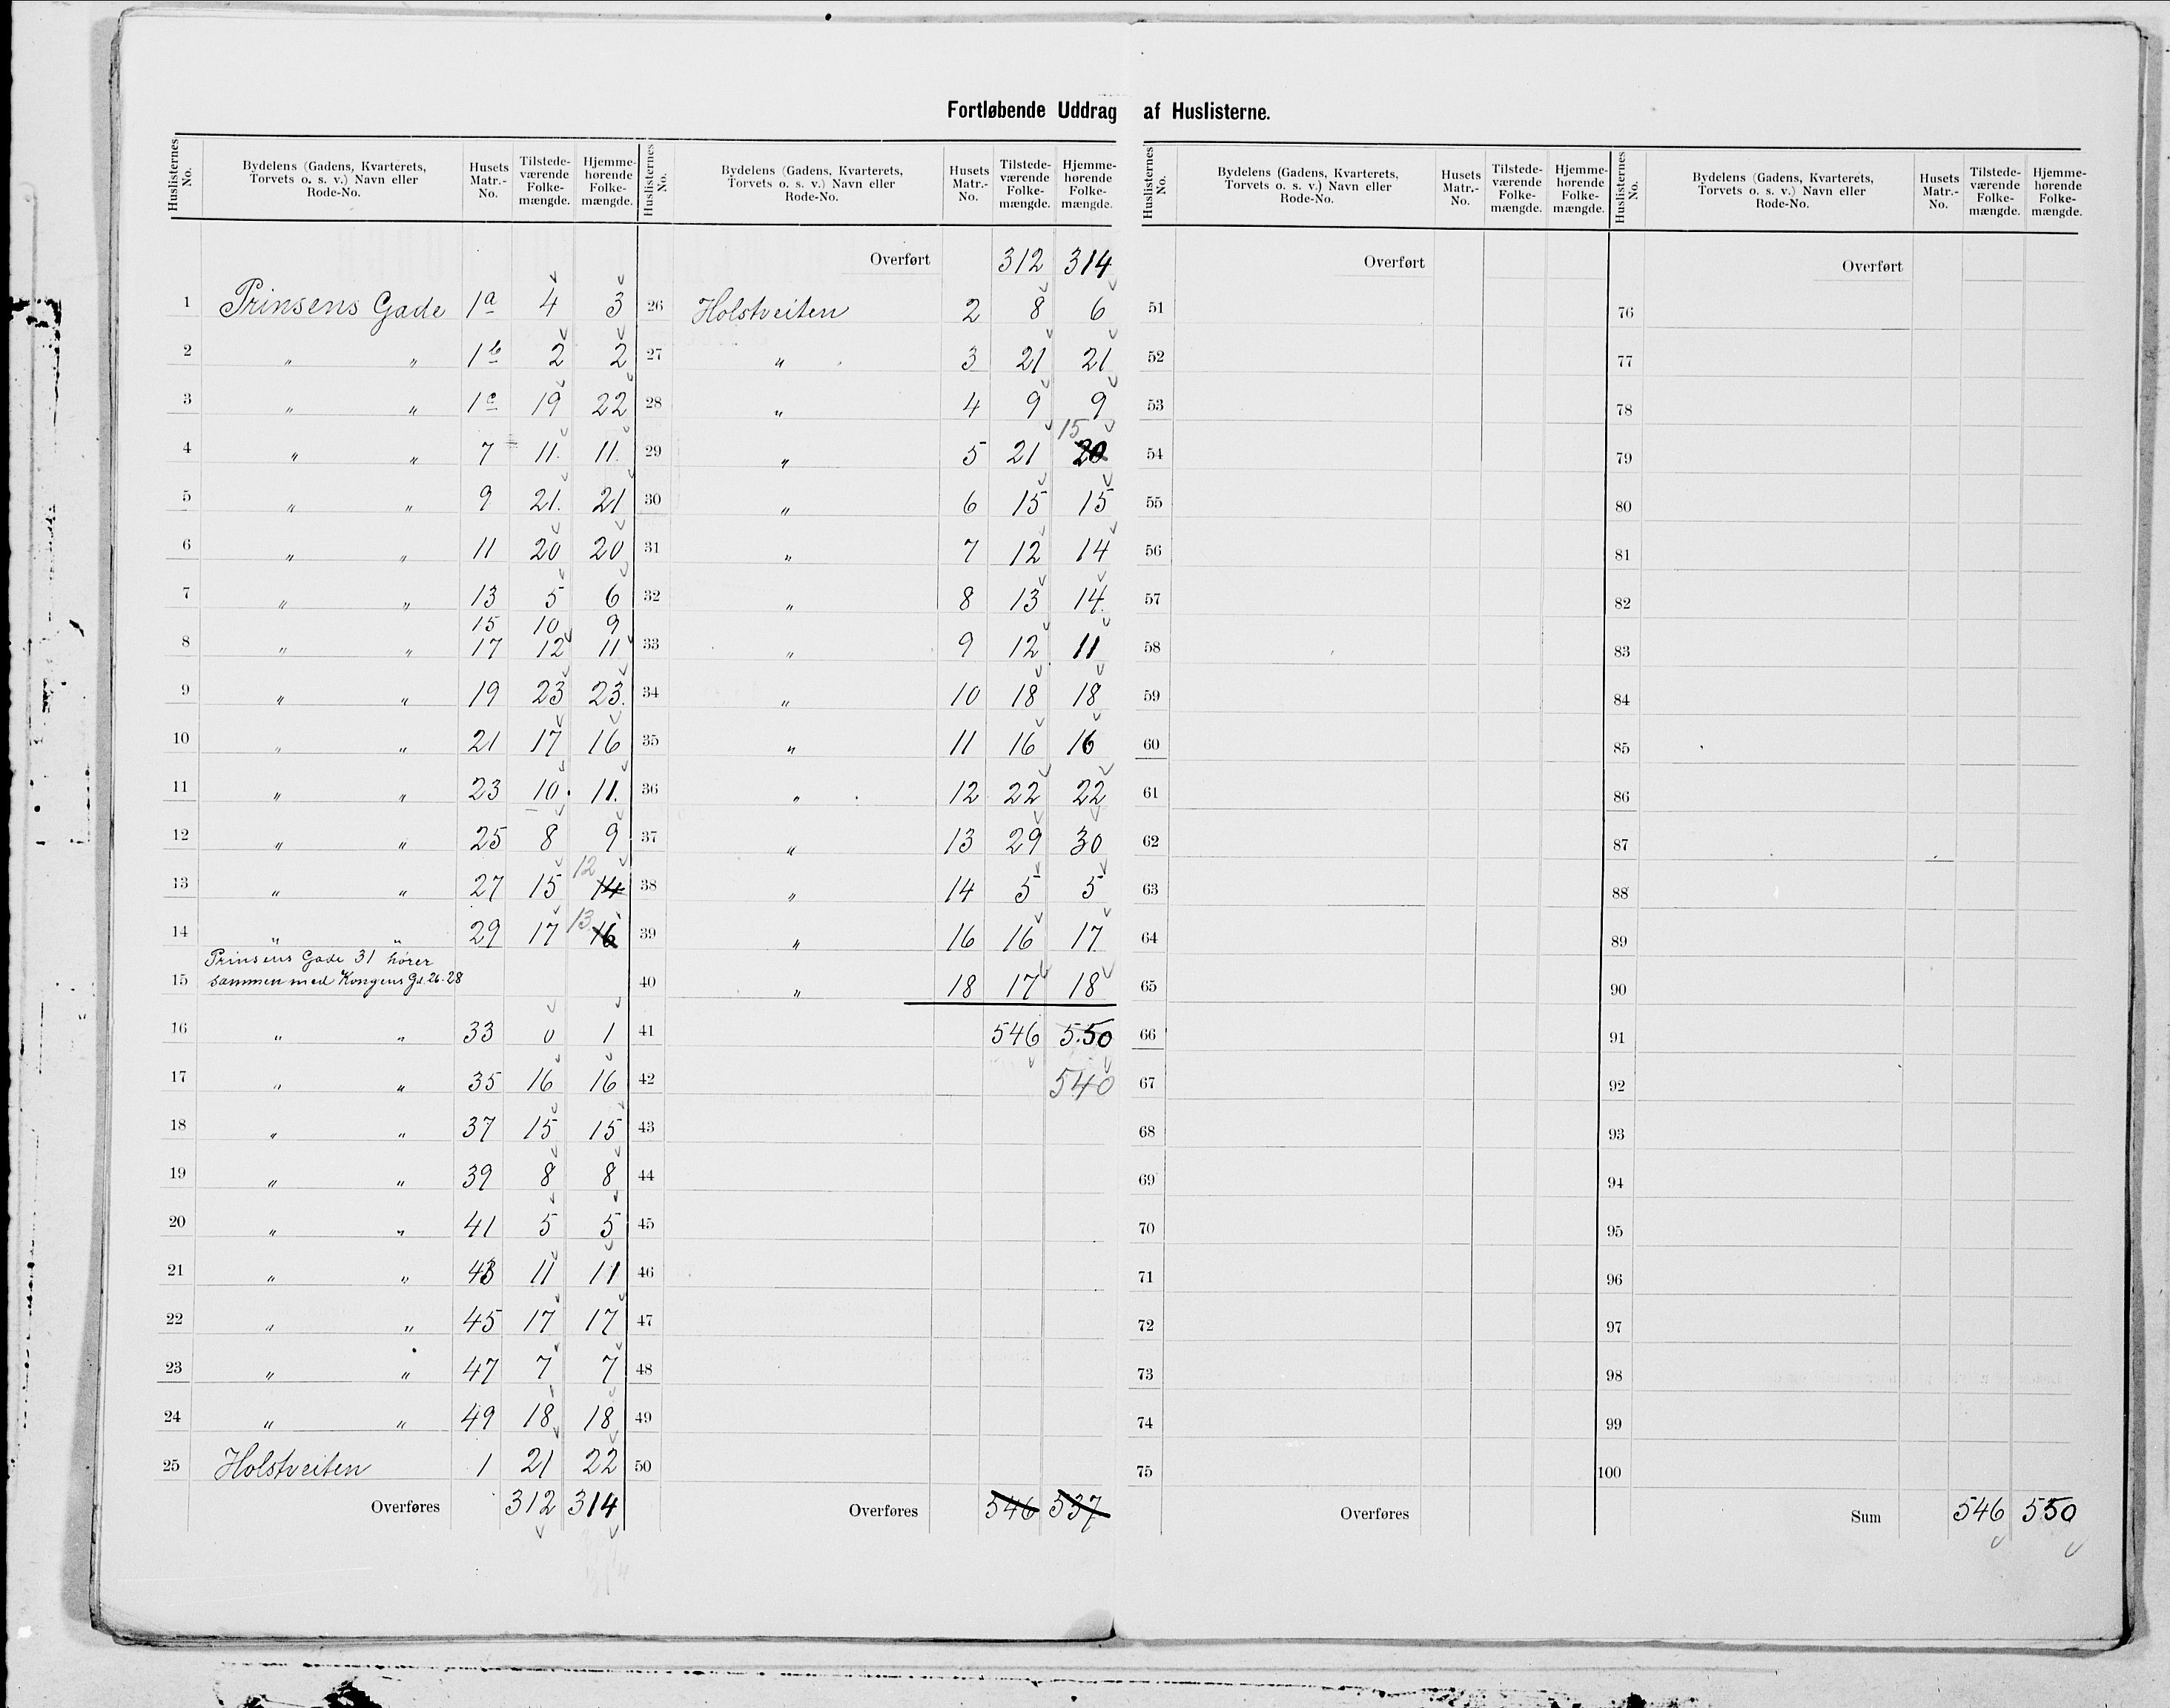 Fortløbende Uddrag af Huslisterne.
Huslisternes No. | Bydelens (Gadens, Kvarterets, Torvets o. s. v.) Navn eller Rode-No. | Husets Matr.-No. | Tilstede-værende Folke-mængde. | Hjemme-hørende Folke-mængde.
1 Prinsens Gade 1a 4 3
2 " " 1b 2 2
3 " " 1c 19 22
4 " " 7 11. 11.
5 " " 9 21. 21
6 " " 11 20 20
7 " " 13 5 6
15 10 9
8 " " 17 12 11
9 " " 19 23 23.
10 " " 21 17 16
11 " " 23 10. 11.
12 " " 25 8 9
13 " " 27 15 12 14
14 " " 29 17 13 16
Prinsens Gade 31 hører
15 sammen med Kongens Gd. 26-28
16 " " 33 0 1
17 " " 35 16 16
18 " " 37 15 15
19 " " 39 8 8
20 " " 41 5 5
21 " " 43 11 11
22 " " 45 17 17
23 " " 47 7 7
24 " " 49 18 18
25 Holstveiten 1 21 22
Overføres 312 314
Huslisternes No. | Bydelens (Gadens, Kvarterets, Torvets o. s. v.) Navn eller Rode-No. | Husets Matr.-No. | Tilstede-værende Folke-mængde. | Hjemme-hørende Folke-mængde.
Overført 312 314
26 Holstveiten 2 8 6
27 " 3 21 21
28 " 4 9 9
29 " 5 21 15 20
30 " 6 15 15
31 " 7 12 14
32 " 8 13 14.
33 " 9 12 11
34 " 10 18 18
35 " 11 16 16
36 " 12 22 22
37 " 13 29 30
38 " 14 5 5
39 " 16 16 17.
40 " 18 17 18
41 546 550
42 540
43
44
45
46
47
48
49
50
Overføres 546 537
Huslisternes No. | Bydelens (Gadens, Kvarterets, Torvets o. s. v.) Navn eller Rode-No. | Husets Matr.-No. | Tilstede-værende Folke-mængde. | Hjemme-hørende Folke-mængde.
Overført
51
52
53
54
55
56
57
58
59
60
61
62
63
64
65
66
67
68
69
70
71
72
73
74
75
Overføres
Huslisternes No. | Bydelens (Gadens, Kvarterets, Torvets o. s. v.) Navn eller Rode-No. | Husets Matr.-No. | Tilstede-værende Folke-mængde. | Hjemme-hørende Folke-mængde.
Overført
76
77
78
79
80
81
82
83
84
85
86
87
88
89
90
91
92
93
94
95
96
97
98
99
100
Sum 546 550